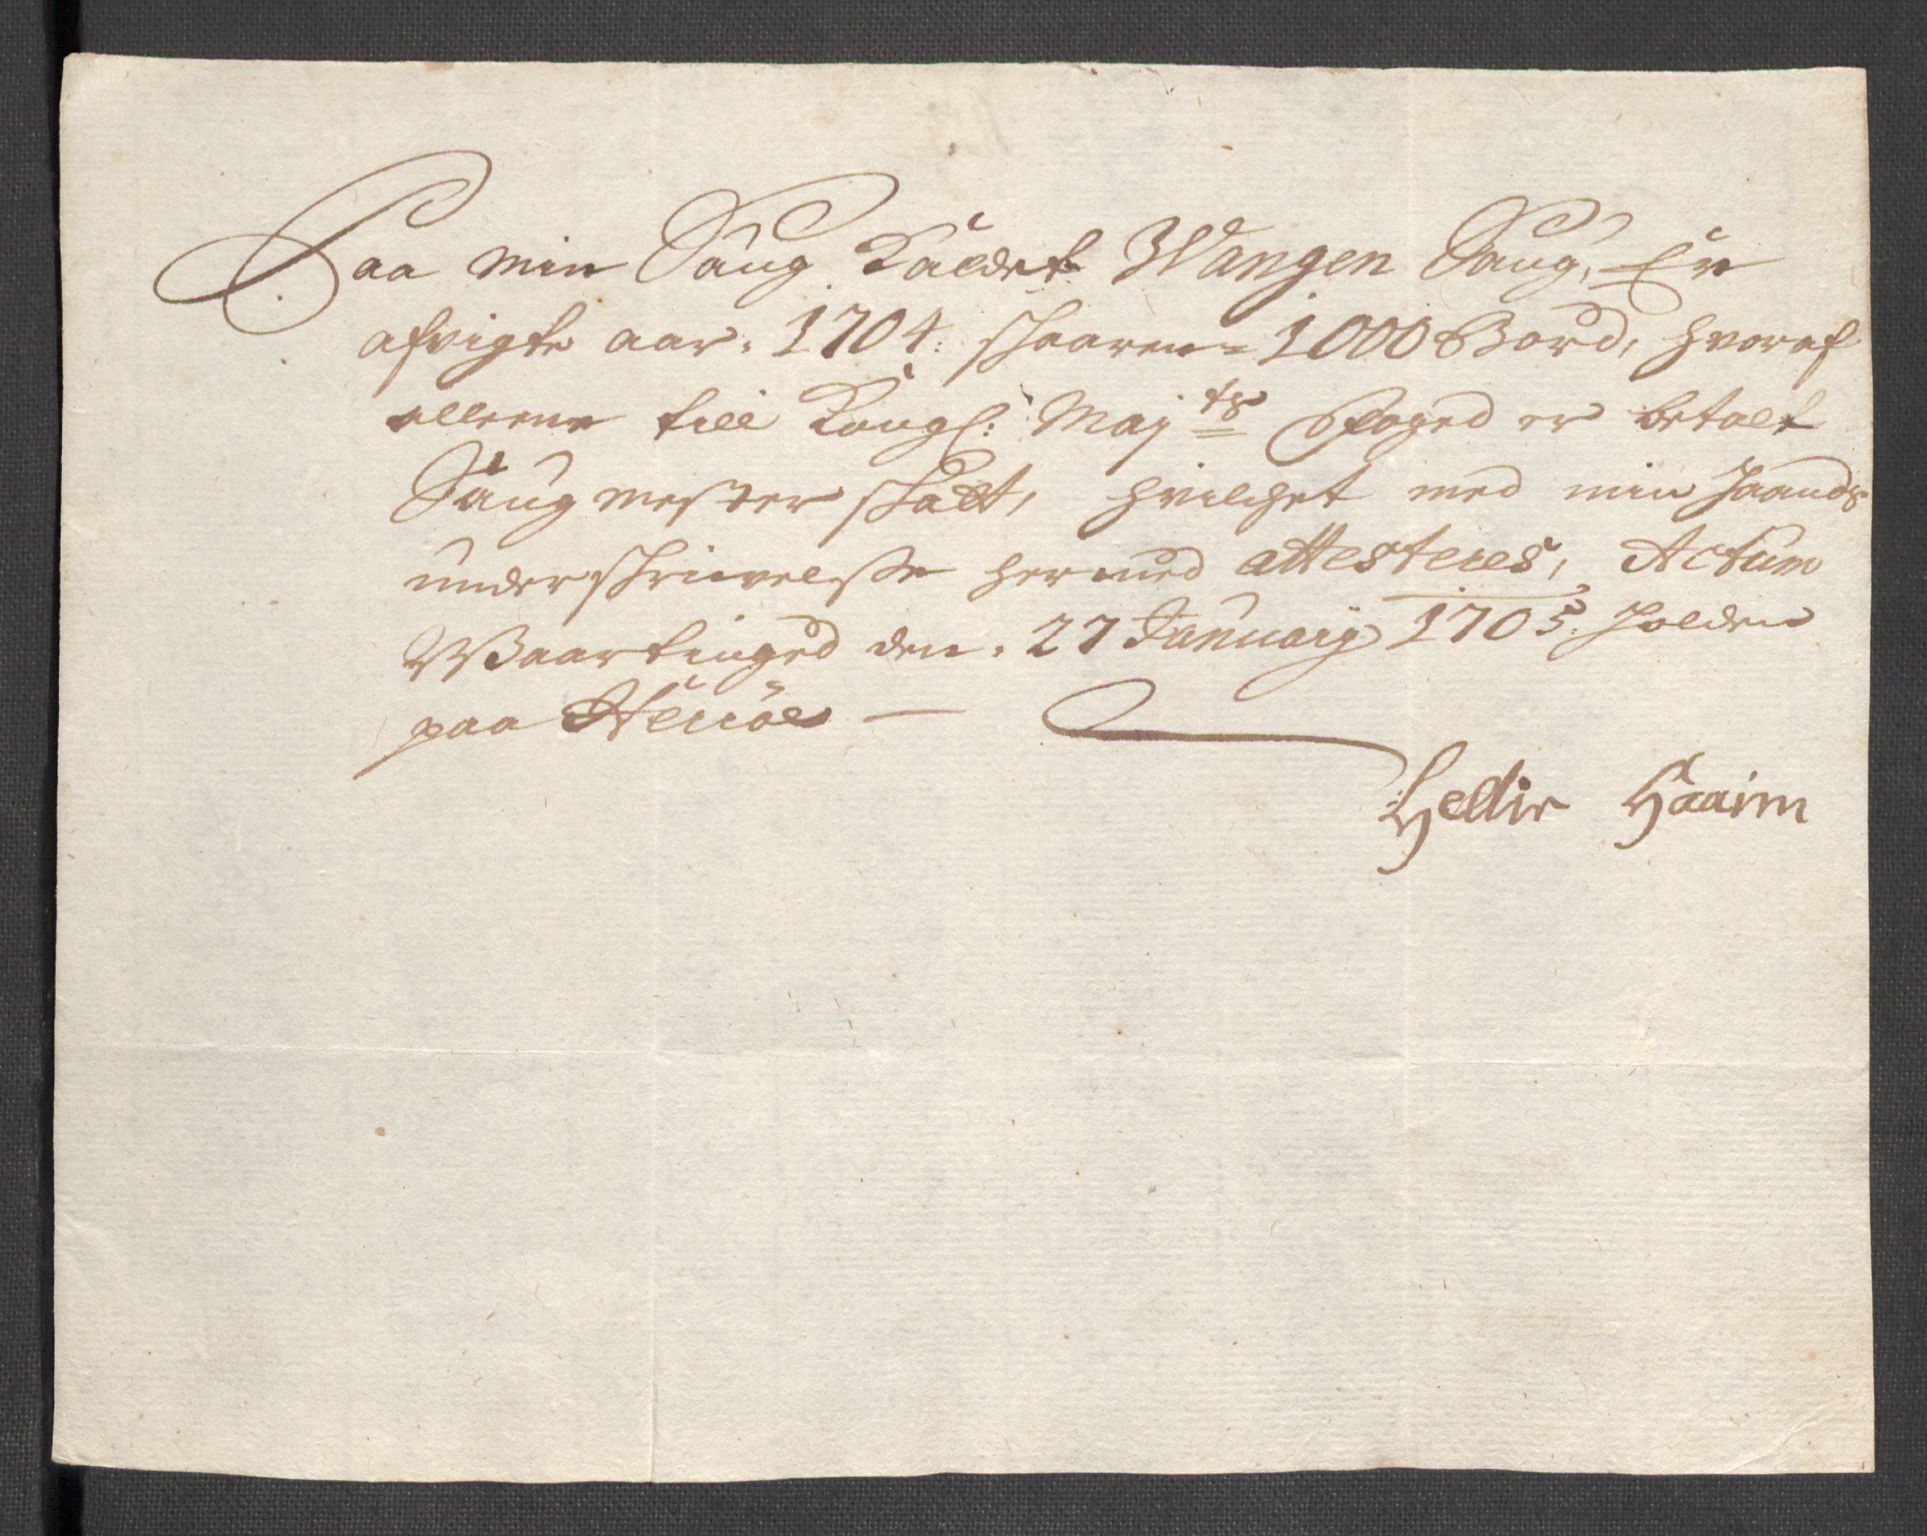 Paa min Saug Kaldet Wangen Saug, Er
afvigte aar. 1704: skaaren 1000 Bord, hvoraf
alleene till Kongl: Maj:ts Foged er betalt
Saugmester skatt, hvilchet med min haands
underskrivelsse hermed attesteres, Actum
Waartinged den. 27 January 1705. holden
paa Herröe —
Hellir Haaim